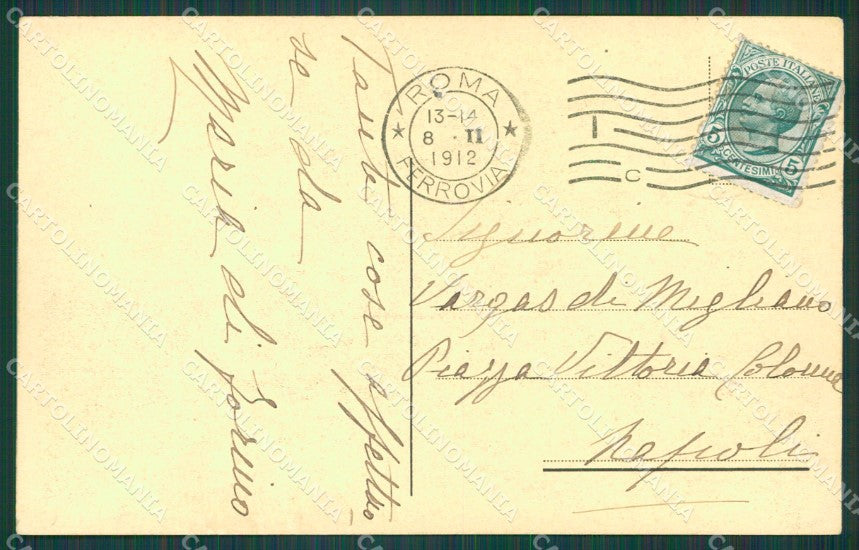 Tante cose affettuo
se da
Maria di Forino
ROMA
FERROVIA
13-14
8 · II
1912
I
C
POSTE ITALIANE
5 CENTESIMI 5
Signorine
Vargas di Migliano
Piazza Vittoria Colonna
Napoli
CARTOLINOMANIA